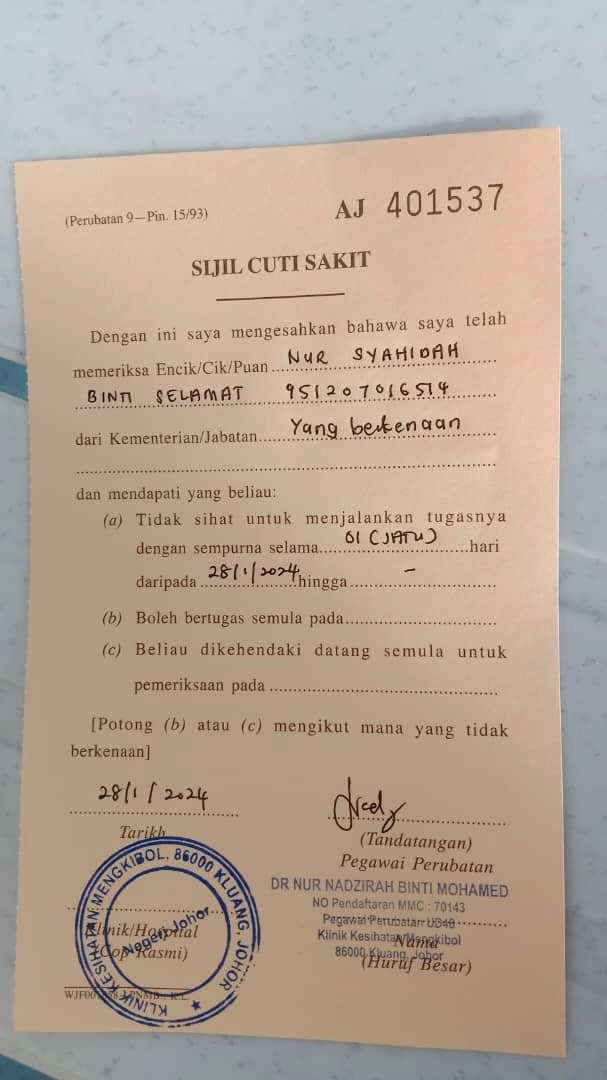 (Perubatan 9—Pin. 15/93)
AJ 401537
SIJIL CUTI SAKIT
Dengan ini saya mengesahkan bahawa saya telah
memeriksa Encik/Cik/Puan NUR SYAHIDAH
BINTI SELAMAT 951207016514
dari Kementerian/Jabatan Yang berkenaan
dan mendapati yang beliau:
(a) Tidak sihat untuk menjalankan tugasnya
dengan sempurna selama 01 (SATU) hari
daripada 28/1/2024 hingga –
(b) Boleh bertugas semula pada
(c) Beliau dikehendaki datang semula untuk
pemeriksaan pada
[Potong (b) atau (c) mengikut mana yang tidak
berkenaan]
28/1/2024
Tarikh
(Tandatangan)
Pegawai Perubatan
DR NUR NADZIRAH BINTI MOHAMED
NO Pendaftaran MMC : 70143
Pegawai Perubatan UD48
Klinik Kesihatan Mengkibol
86000 Kluang, Johor
Nama
(Huruf Besar)
KLINIK KESIHATAN MENGKIBOL, 86000 KLUANG JOHOR
Negeri Johor
Klinik/Hospital
(Cop Rasmi)